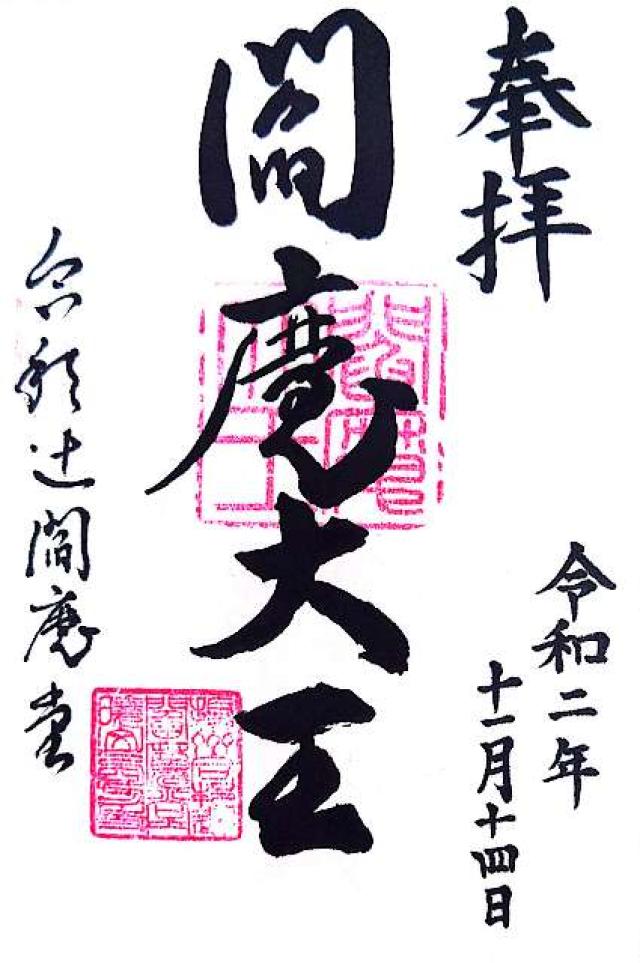 奉拝
令和二年
十一月十四日
閻魔大王
合槌辻閻魔堂